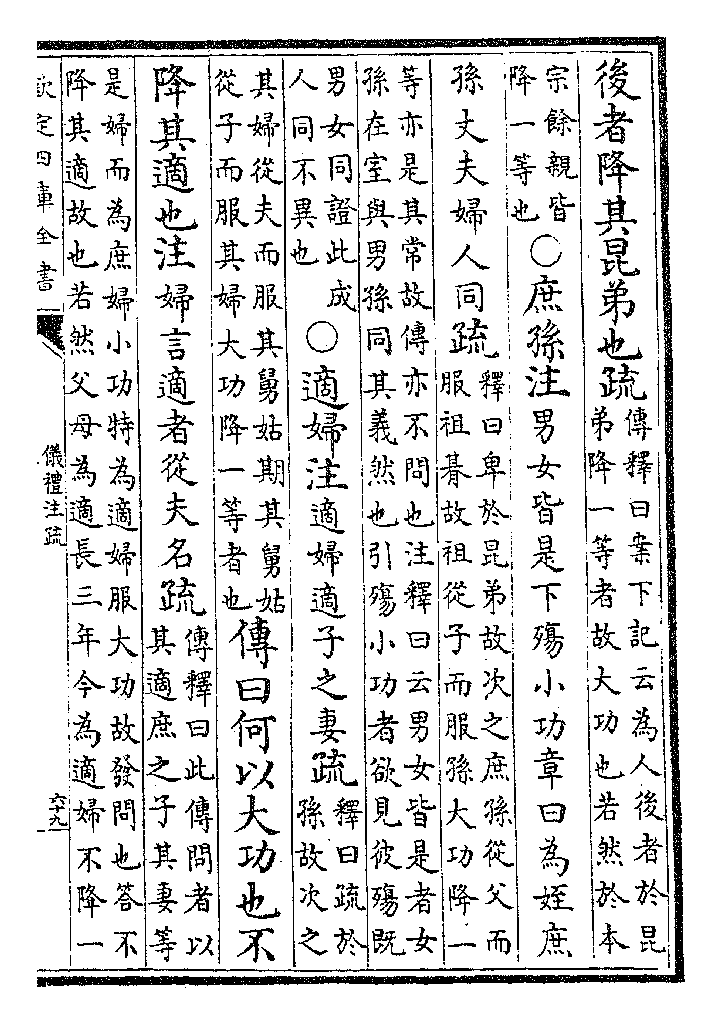 後者降其昆弟也疏傳釋曰案下記云為人後者於昆
弟降一等者故大功也若然於本
宗餘親皆
降一等也
〇庶孫注男女皆是下殤小功章曰為姪庶
孫丈夫婦人同疏釋曰卑於昆弟故次之庶孫從父而
服祖朞故祖從子而服孫大功降一
等亦是其常故傳亦不問也注釋曰云男女皆是者女
孫在室與男孫同其義然也引殤小功者欲見彼殤既
男女同證此成
人同不異也
〇適婦注適婦適子之妻疏釋曰疏於
孫故次之
其婦從夫而服其舅姑期其舅姑
從子而服其婦大功降一等者也
傳曰何以大功也不
降其適也注婦言適者從夫名疏傳釋曰此傳問者以
其適庶之子其妻等
是婦而為庶婦小功特為適婦服大功故發問也答不
降其適故也若然父母為適長三年今為適婦不降一
欽定四庫全書
儀禮注疏
六十九